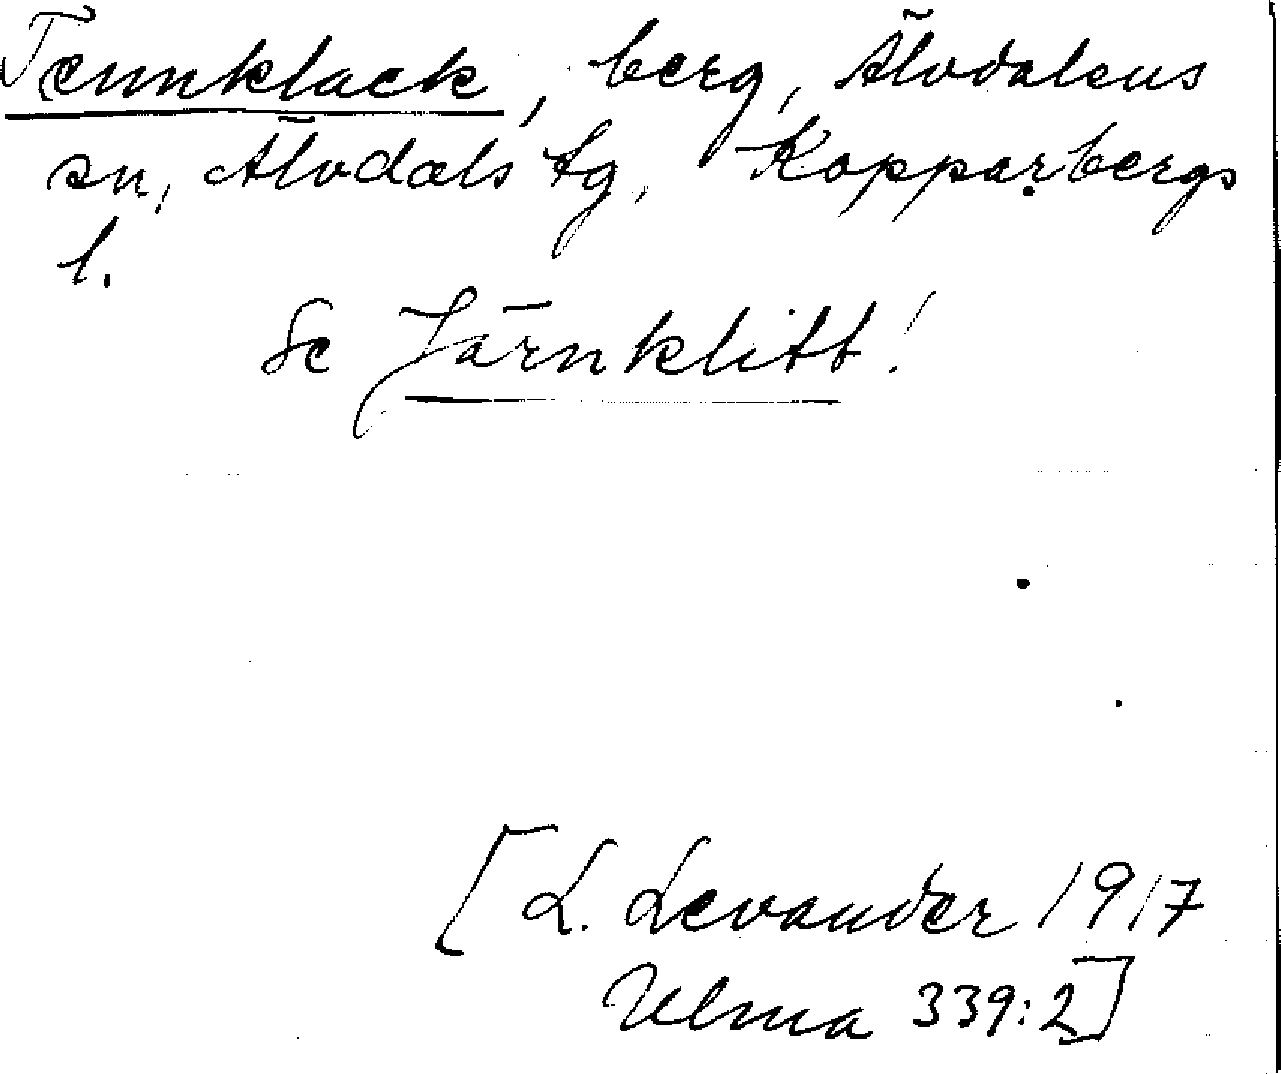 Tennklack, berg, Älvdalens
sn, Älvdals tg, Kopparbergs
l.
Se Järnklitt!
[L. Levander 1917
Ulma 339:2]